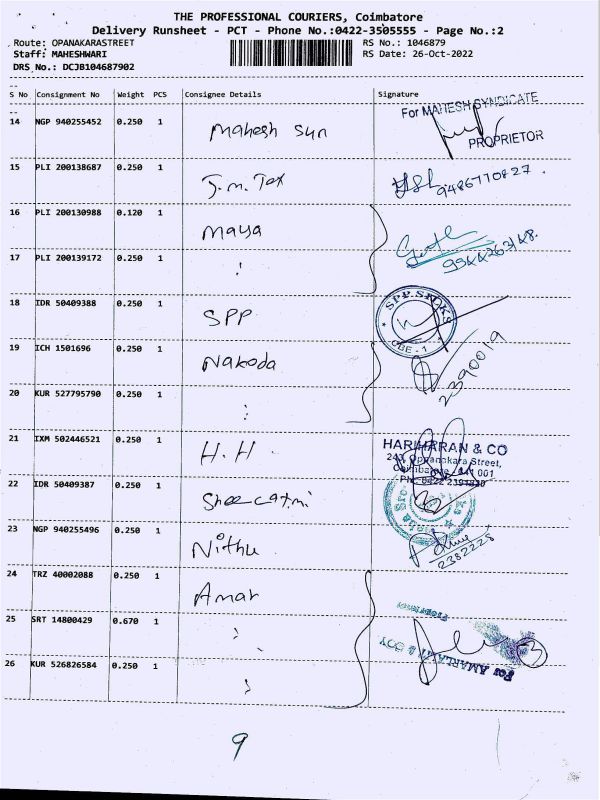 THE PROFESSIONAL COURIERS, Coimbatore
Delivery Runsheet - PCT - Phone No.:0422-3505555 - Page No.:2
Route: OPANAKARASTREET RS No.: 1046879
Staff: MAHESHWARI RS Date: 26-Oct-2022
DRS No.: DCJB104687902
S No Consignment No Weight PCS Consignee Details Signature
14 NGP 940255452 0.250 1 Mahesh Sun For MAHESH SYNDICATE
PROPRIETOR
15 PLI 200138687 0.250 1 J.M. Tex 9486770827.
16 PLI 200130988 0.120 1 Maya
17 PLI 200139172 0.250 1 "
18 IDR 50409388 0.250 1 SPP SPP. SILKS
CBE - 1
19 ICH 1501696 0.250 1 Nakoda 2390019
20 KUR 527795790 0.250 1 "
21 IXM 502446521 0.250 1 H.H. HARIHARAN & CO
Oppanakara Street,
Coimbatore - 641 001
22 IDR 50409387 0.250 1
23 NGP 940255496 0.250 1 Nithu 2382228
24 TRZ 40002088 0.250 1 Amar
25 SRT 14800429 0.670 1 " Proprietor
26 KUR 526826584 0.250 1 " For AMARLAL & BOY
9